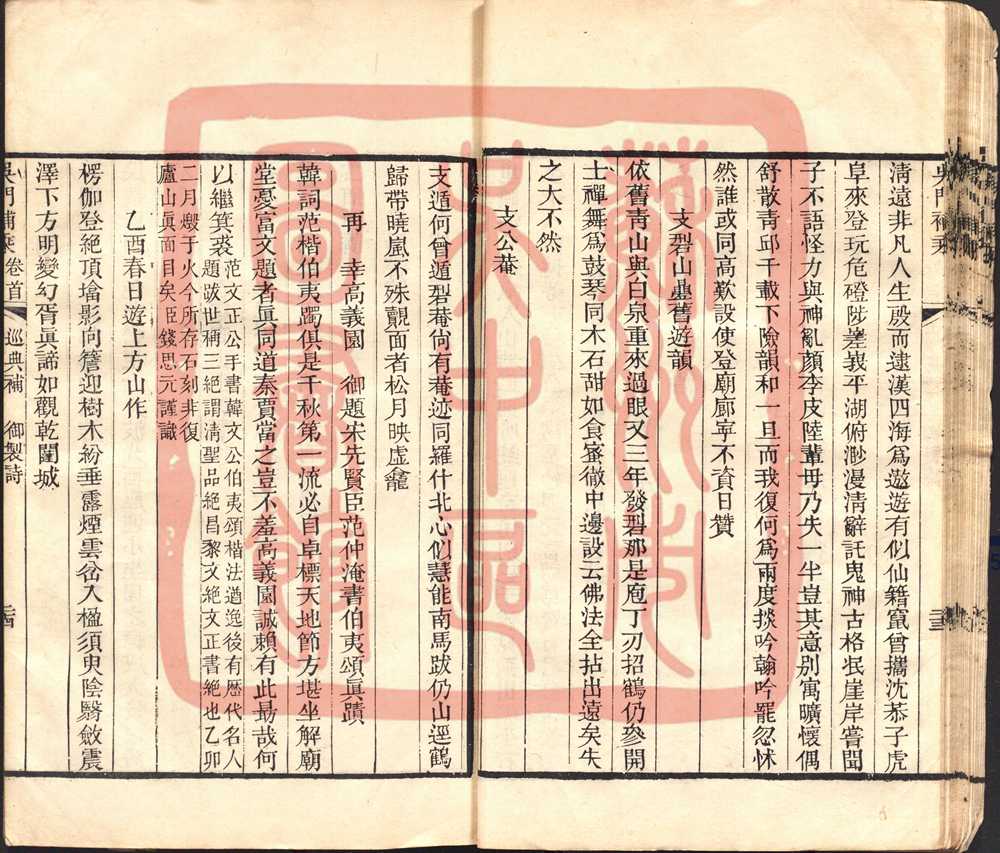 清遠非凡人生殷而遠漢四海爲遨遊有似仙籍竄曾攜沈恭子虎
阜來登玩危磴陟嵳峩平湖俯渺漫淸辭託鬼神古格泯崖岸嘗聞
子不語怪力與神亂顏李皮陸輩毋乃失一半豈其意别寓曠懷偶
舒散青邱千載下險韻和一旦而我復何爲兩度掞吟翰吟罷忽怵
然誰或同高歎設使登廟廊寧不資日贊
支硎山疊舊遊韻
依舊靑山與白泉重來過眼又三年發硎那是庖丁刃招鶴仍參開
士禪舞爲鼓琴同木石甜如食蜜徹中邊設云佛法全拈出遠矣失
之大不然
支公菴
支遁何曾遁硎菴尙有菴迹同羅什北心似慧能南馬跋仍山逕鶴
歸帶曉嵐不殊覿面者松月映虛龕
再 幸高義園 御題宋先賢臣范仲淹書伯夷頌眞蹟
韓詞范楷伯夷躅俱是千秋第一流必自卓標天地節方堪坐解廟
堂憂富文題者眞同道秦賈當之豈不羞高義園誠賴有此最哉何
以繼箕裘
范文正公手書韓文公伯夷頌楷法遒逸後有歷代名人
題跋世稱三絕謂淸聖品絕昌黎文絕文正書絕也乙卯
二月燬于火今所存石刻非復
廬山眞面目矣臣錢思元謹識
乙酉春日遊上方山作
楞伽登絕頂墖影向簷迎樹木紛垂露煙雲忿入楹須臾陰翳斂震
澤下方明變幻胥眞諦如觀乾闥城
吳門補乘 卷首 巡典補 御製詩